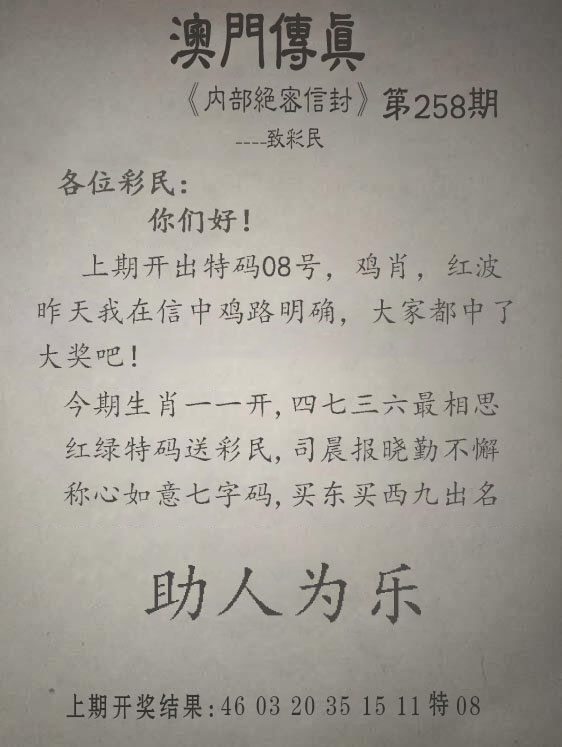 澳門傳真
《内部絕密信封》第258期
----致彩民
各位彩民：
你们好！
上期开出特码08号，鸡肖，红波
昨天我在信中鸡路明确，大家都中了
大奖吧！
今期生肖一一开,四七三六最相思
红绿特码送彩民,司晨报晓勤不懈
称心如意七字码,买东买西九出名
助人为乐
上期开奖结果:46 03 20 35 15 11 特 08